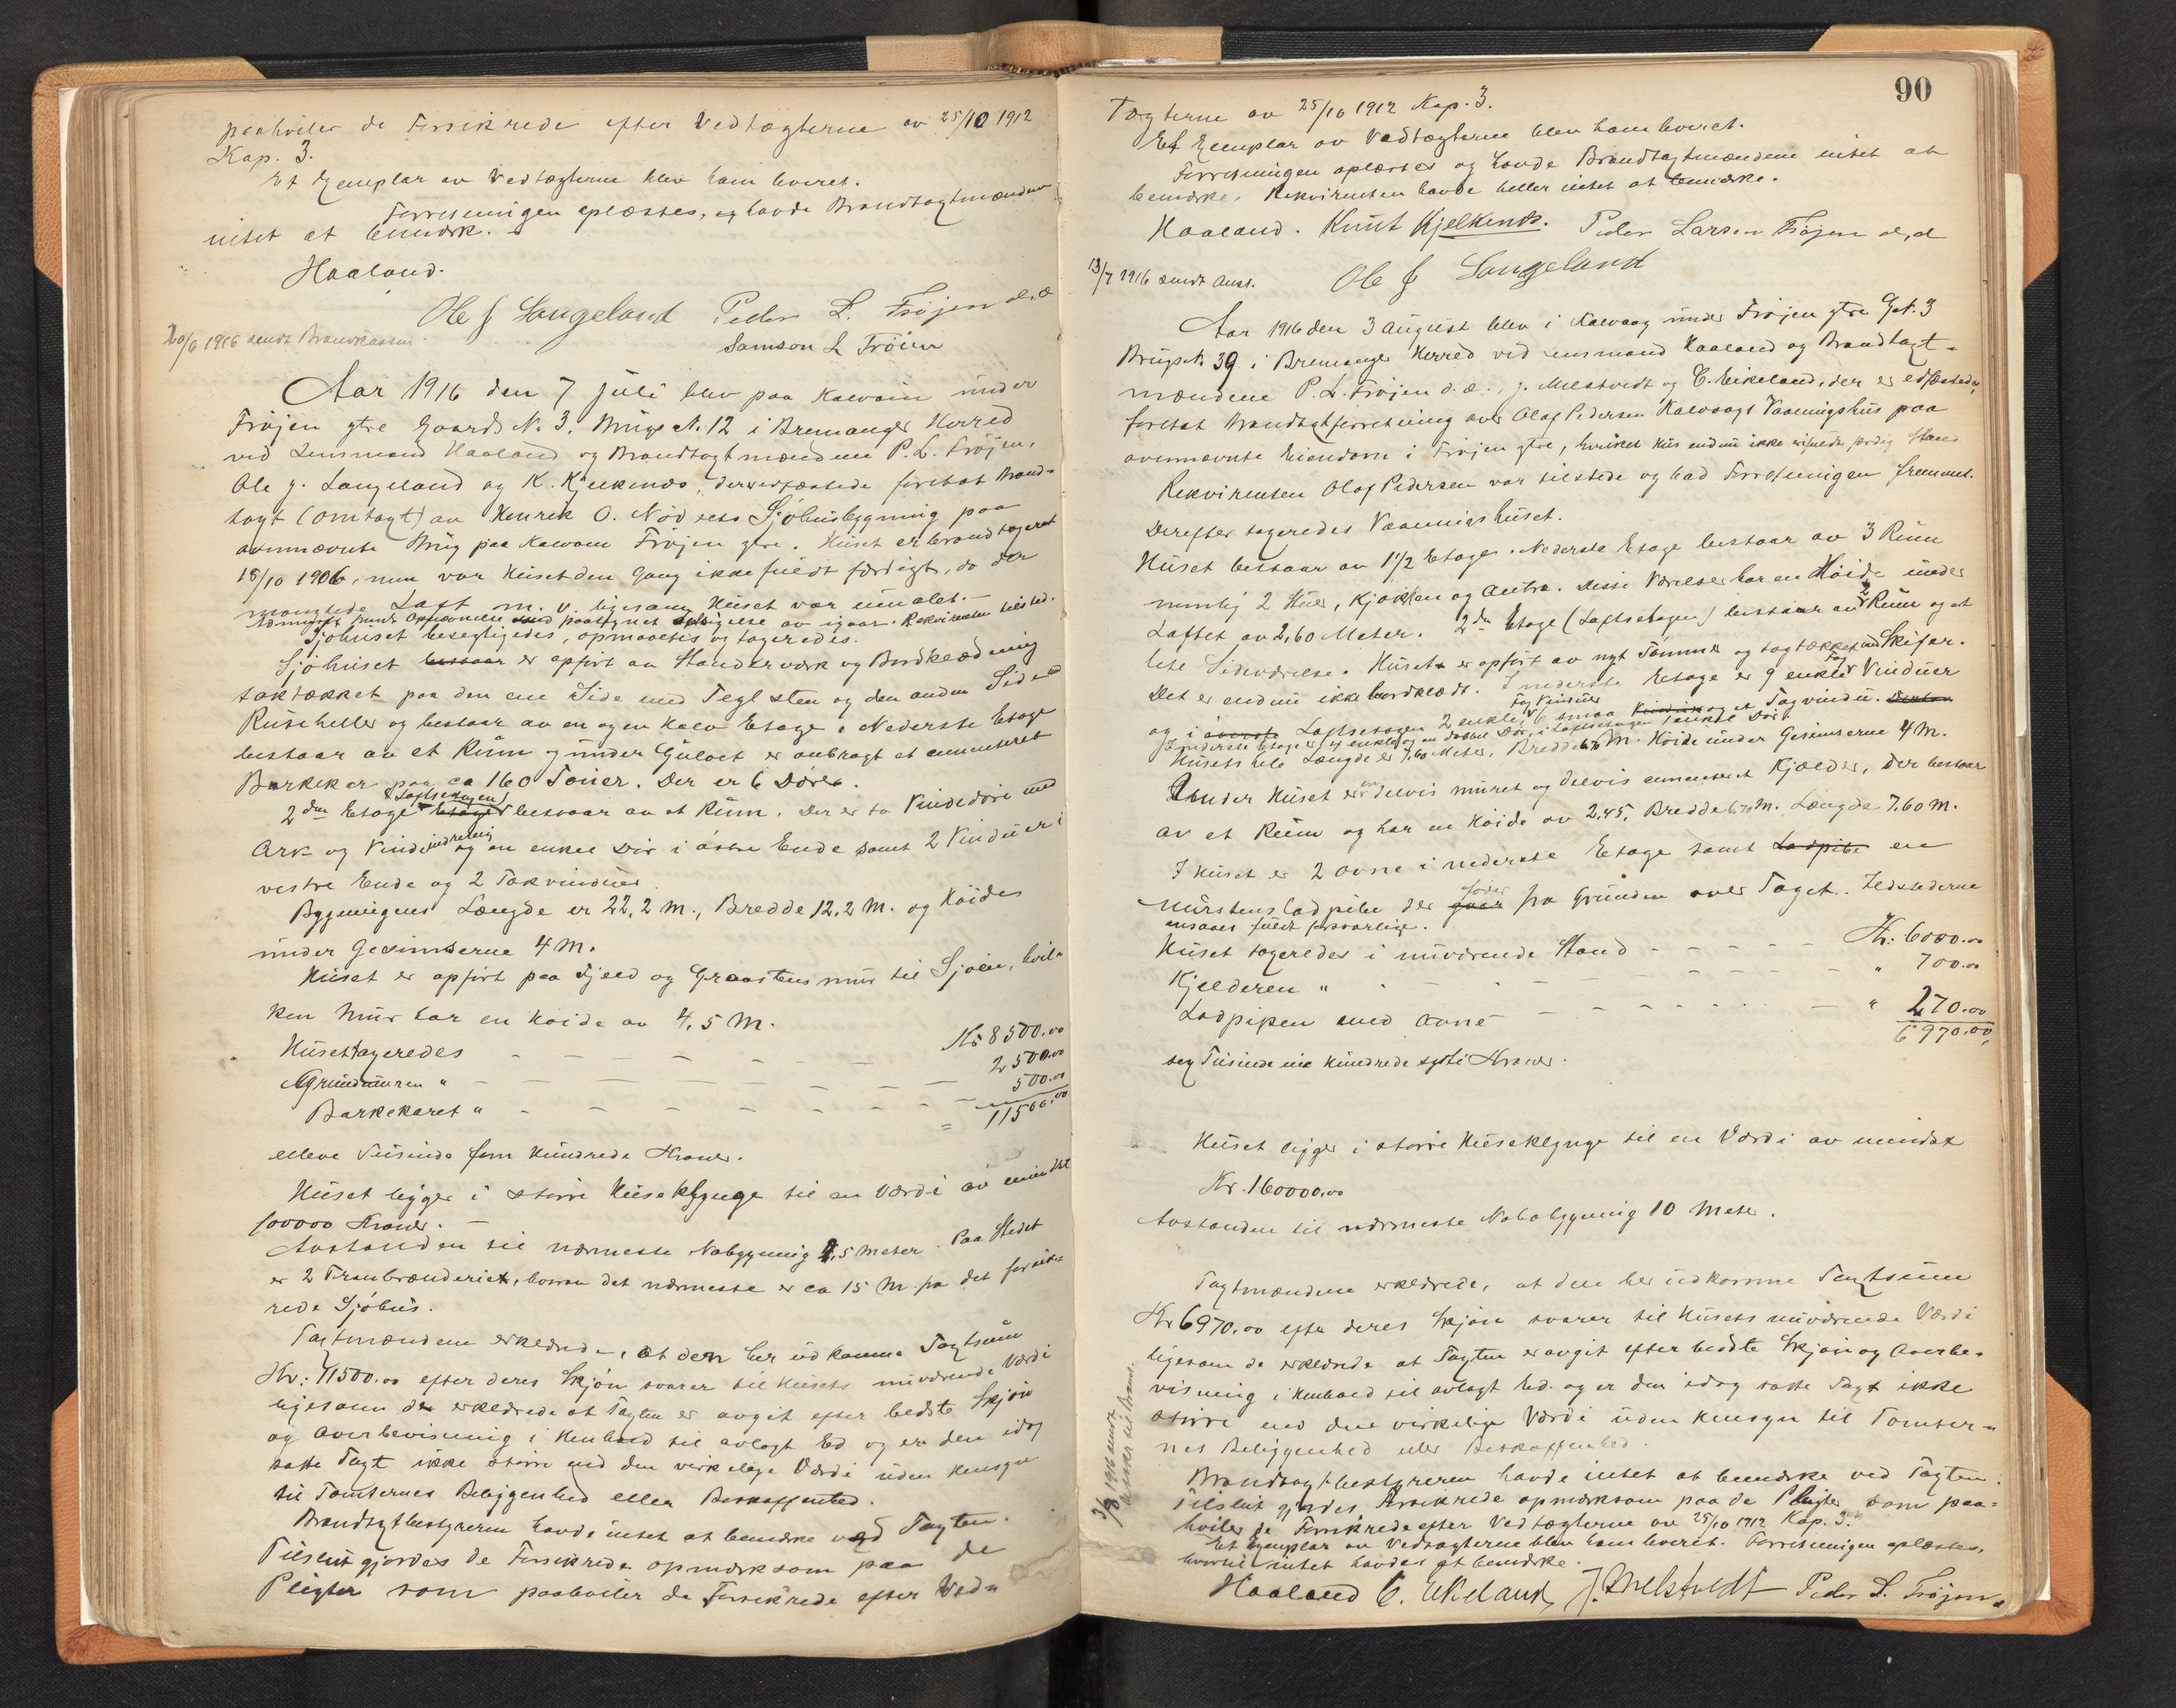 paahviler de Forsikrede efter Vedtægterne av 25/10 1912
Kap. 3.
Et Exemplar av Vedtægterne blev ham leveret.
Forretningen oplæstes, og havde Brandtagtmændene
intet at bemærk.
Haaland.
Ole J Langeland Peder L. Frøjen d.æ
Samson L Frøien
20/6 1916 sendt Brandkassen
Aar 1916 den 7 juli blev paa Kalvøin under
Frøjen ytre Gaards No. 3. Brugs No. 12 i Bremanger Herred
ved Lensmand Haaland og Brandtagtmændene P. L. Frøjen,
Ole J. Langeland og K. Kjelkenes, der er edfæstede foretat Brand-
tagt (omtagt) av Henrik O. Nød sets Sjøhusbygning paa
ovennævnte Brug paa Kalvøin Frøjen ytre. Huset er brandtageret
18/10 1906, men var Huset den Gang ikke fuldt færdigt, da der
manglede Laft m. v. ligesom Huset var umalet.
Rekvirenten tilsted.
Sjøhuset besegtigedes, opmaaltes og tageredes.
Sjøhuset bestaar er opført av Standerverk og Bordklædning
taktækket paa den ene Side med Teglsten og den anden Side med
Ruseheller og bestaar av en og en halv Etage. Nederste Etage
bestaar av et Rum og under Gulvet er anbragt et cementeret
Barkekar paa ca 160 Tøner. Der er 6 Døre.
2den Etage (Loftsetagen) Etage bestaar av et Rum. Der er to Vindedøre med
Ark og Vindeindretning og en enkel Dør i østre Ende samt 2 Vinduer i
vestre Ende og 2 Takvinduer.
Bygningens Længde er 22,2 M., Bredde 12,2 M. og Høide
under Gesimserne 4 M.
Huset er opført paa Fjeld og Graastens mur til Sjøen, hvil-
ken Mur har en Høide av 4,5 M.
Huset tageredes - - - - - - Kr 8500.00
Grundmuren " - - - - - - 2500.00
Barkekaret " - - - - - - 500.00
= 11500.00
elleve Tusinde fem Hundrede Kroner.
Huset ligger i større Huseklynge til en Værdi av mindst
100000 Kroner.
Avstanden til nærmeste Nabygning 4,5 Meter. Paa Stedet
er 2 Tranbrænderier, hvorav det nærmeste er ca 15 M. fra det forsik-
rede Sjøhus.
Tagtmændene erklærede, at den her udkomne Tagtsum
Kr: 11500.00 efter deres Skjøn svarer til Husets nuværende Værdi
ligesom de erklærede at Tagten er avgit efter bedste Skjøn
og Overbevisning i Henhold til avlagt Ed og er den idag
satte Tagt ikke større end den virkelige Værdi uden Hensyn
til Tomternes Beliggenhed eller Beskaffenhed.
Brandtagtbestyreren havde intet at bemærke ved Tagten.
Tilslut gjordes de Forsikrede opmerksom paa de
Pligter som paahviler de Forsikrede efter Ved-
90
Tægterne av 25/10 1912 Kap. 3.
Et Exemplar av Vedtægterne blev ham leveret.
Forretningen oplæstes og havde Brandtagtmændene intet at
bemærke. Rekvirenten havde heller intet at bemærke.
Haaland. Knut Kjelkenes. Peder Larsen Frøjen d.æ
13/7 1916 sendt Amt. Ole J Langeland
Aar 1916 den 3 august blev i Kalvaag under Frøjen ytre Gnr. 3
Brugs No. 39 i Bremanger Herred ved Lensmand Haaland og Brandtagt-
mændene P. L. Frøjen d.æ., J. Melstvedt og C. Eikeland, der er edfæstede,
foretat Brandtagtforretning over Olaf Pedersen Kalvaags Vaaningshus paa
ovennævnte Eiendom i Frøjen ytre, hvilket Hus endnu ikke er i fuldt færdig Stand
Rekvirenten Olaf Pedersen var tilstede og bad Forretningen fremmet.
Derefter tageredes Vaaningshuset.
Huset bestaar av 1½ Etage. Nederste Etage bestaar av 3 Rum
nemlig 2 Stuer, Kjøkken og Entre. Disse Værelser har en Høide under
Laftet av 2,60 Meter. 2den Etage (Loftsetagen) bestaar av 2 Rum og et
lite Sideværelse. Huset er opført av nyt Tømmer og tagtækket med Skifer.
Det er endnu ikke bordklædt. I nederste Etage er 9 enkle Fag Vinduer
og i øverste Loftsetagen 2 enkle Fag Vinduer 6 smaa Vinduer og et Tagvindu.
I nederste Etage er 4 enkle og en dobbel Dør, i Loftsetagen 1 enkle Dør.
Husets hele Længde er 7,60 Meter, Bredde 6,70 M. Høide under Gesimserne 4 M.
Under Huset er en delvis muret og delvis cementeret Kjælder, der bestaar
av et Rum og har en Høide av 2,45, Bredde 6,70 M. Længde 7,60 M.
I Huset er 2 ovne i nederste Etage samt Ladpibe en
Murstensladpibe der gaar fører fra Grunden over Taget. Ildstederne
ansaaes fuldt forsvarlige.
Huset tageredes i nuværende Stand - - - - - Kr: 6000.00
Kjelderen " - - - - - " 700.00
Ladpipen med Ovne - - - - - - " 270.00
6970.00
sex Tusinde ni Hundrede sytti Kroner.
Huset ligger i større Huseklynge til en Værdi av mindst
Kr. 160000.00
Avstanden til nærmeste Nabobygning 10 Meter.
Tagtmændene erklærede, at den her udkomne Tagtsum
Kr 6970.00 efter deres Skjøn svarer til Husets nuværende Værdi
ligesom de erklærede at Tagten er avgit efter bedste Skjøn og Overbe-
visning i Henhold til avlagt Ed. og er den idag satte Tagt ikke
større end den virkelige Værdi uden Hensyn til Tomter-
nes Beliggenhed eller Beskaffenhed.
Brandtagtbestyreren havde intet at bemærke ved Tagten.
Tilslut gjordes Forsikrede opmærksom paa de Pligter som paa-
hviler de Forsikrede efter Vedtægterne av 25/10 1912 Kap. 3.
Et Exemplar av Vedtægterne blev ham leveret. Forretningen oplæstes,
hvortil intet havdes at bemærke.
Haaland C. Eikeland, J. Melstvedt Peder L. Frøjen
3/8 1916 sendt